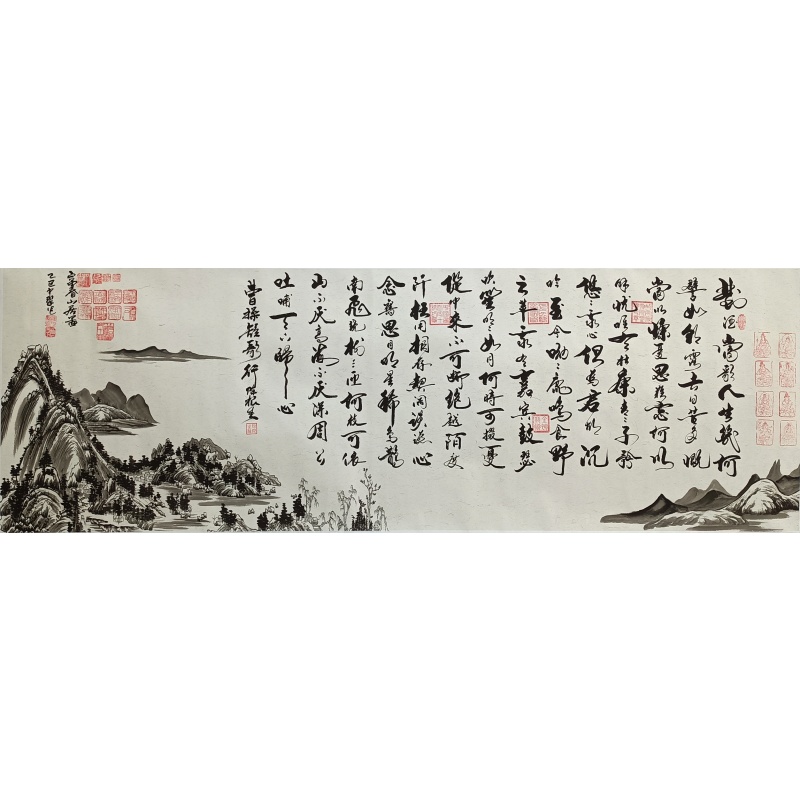 對酒當歌人生幾何
譬如朝露去日苦多慨
當以慷憂思難忘何以
解忧唯有杜康青〻子衿
悠〻我心但為君故沉
吟至今呦〻鹿鳴食野
之苹我有嘉賓鼓瑟
吹笙明〻如月何時可掇憂
從中來不可斷絕越陌度
阡枉用相存契闊談讌心
念舊恩月明星稀烏鵲
南飛繞樹三匝何枝可依
山不厌高海不厌深周公
吐哺天下歸心
曹操短歌行
富春山居圖
乙巳